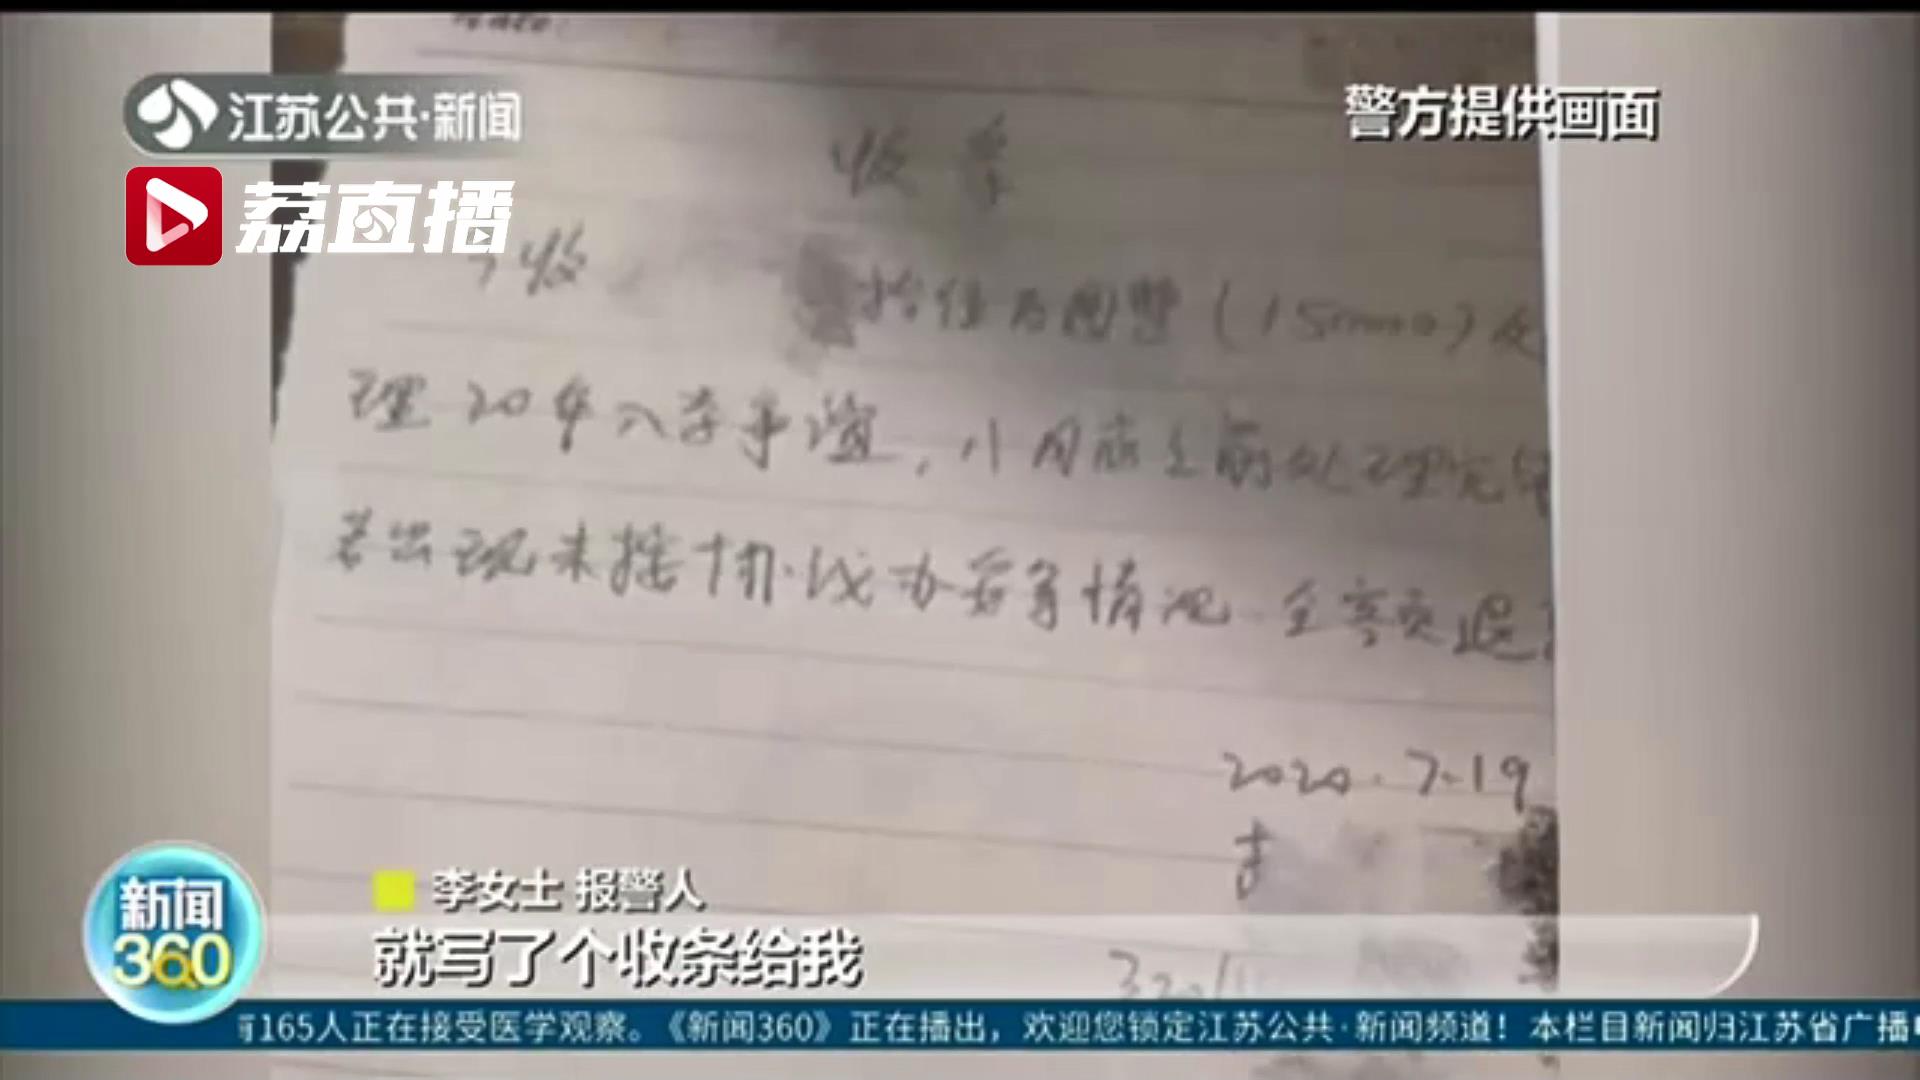 江苏公共·新闻
荔直播
警方提供画面
收条
今收
拾伍万圆整(150000)处
理20年入学事谊,八月底之前处理完毕
若出现未按协议办妥等情况 全额退
2020.7.19
李
3201
李女士 报警人
就写了个收条给我
新闻
360
有165人正在接受医学观察。《新闻360》正在播出,欢迎您锁定江苏公共·新闻频道!本栏目新闻归江苏省广播电